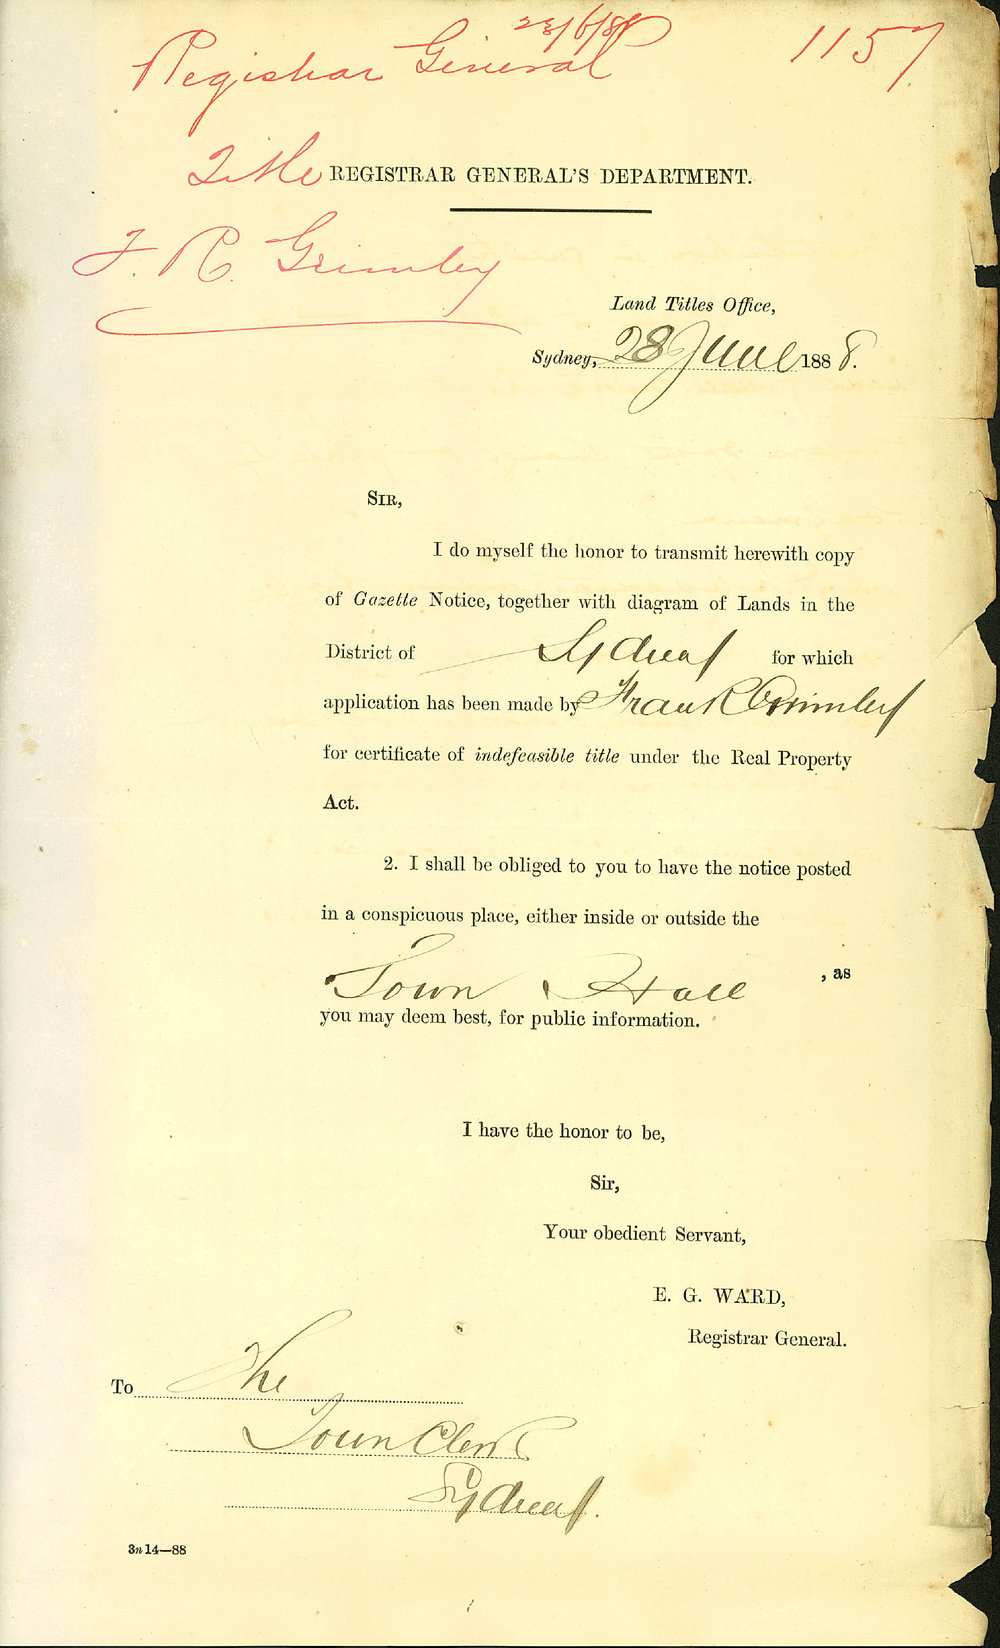 Registrar General
1157
Title
REGISTRAR GENERAL'S DEPARTMENT.
F. R. Grimley
Land Titles Office,
Sydney, 28 June 1888.
SIR,
I do myself the honor to transmit herewith copy
of Gazette Notice, together with diagram of Lands in the
District of Sydney for which
application has been made by Frank Grimley
for certificate of indefeasible title under the Real Property
Act.
2. I shall be obliged to you to have the notice posted
in a conspicuous place, either inside or outside the
Town Hall , as
you may deem best, for public information.
I have the honor to be,
Sir,
Your obedient Servant,
E. G. WARD,
Registrar General.
To The
Town Clerk
Sydney.
3n14—88